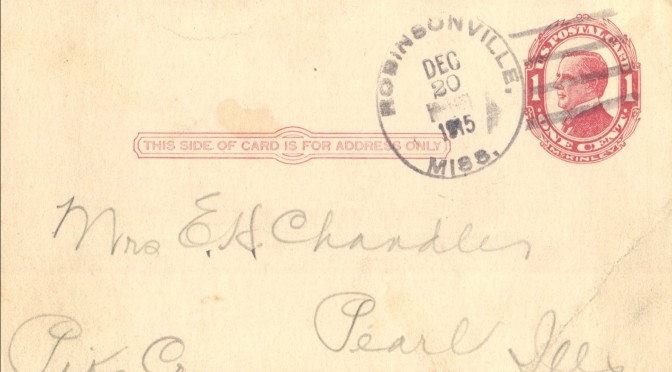 ROBINSONVILLE,
MISS.
DEC
20
1915
U.S. POSTAL CARD
1 1
ONE CENT
McKINLEY
THIS SIDE OF CARD IS FOR ADDRESS ONLY
Mrs E.H. Chandler
Pearl Ills
Pik Co